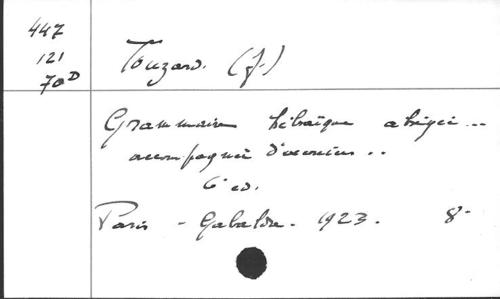 447
121
70D
Touzard. (J.)
Grammaire hébraïque abrégée...
accompagnée d'exercices..
6e ed.
Paris - Gabalda - 1923. 8-